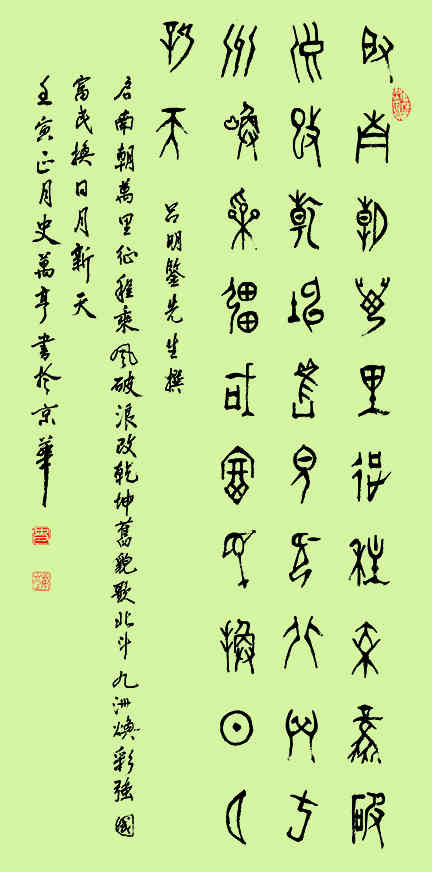 启南朝萬里征程乘風破
浪改乾坤舊貌歌北斗九
洲煥彩強國富民換日月
新天
呂明鑒先生撰
启南朝萬里征程乘風破浪改乾坤舊貌歌北斗九洲煥彩強國
富民換日月新天
壬寅正月史萬亨書於京華